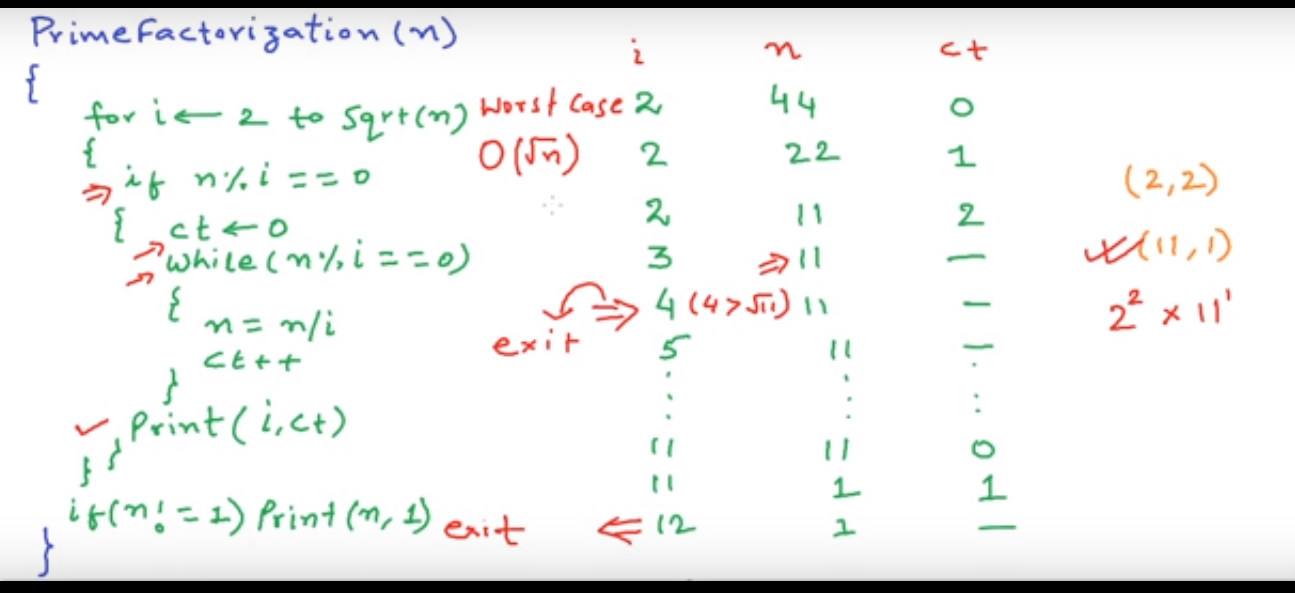 PrimeFactorization(n)
{
for i ← 2 to Sqrt(n)
{
⇒ if n % i == 0
{ ct ← 0
→ while (n % i == 0)
→
{
n = n/i
ct++
}
✓ Print( i, ct)
}
}
if(n! = 1) Print(n, 1)
}
worst case
O(√n)
i n ct
2 44 0
2 22 1
2 11 2
3 ⇒ 11 —
exit ⇒ 4 (4 > √11) 11 —
5 11 —
⋮ ⋮ ⋮
11 11 0
11 1 1
exit ⇐ 12 1 —
(2,2)
(11,1)
2² × 11¹